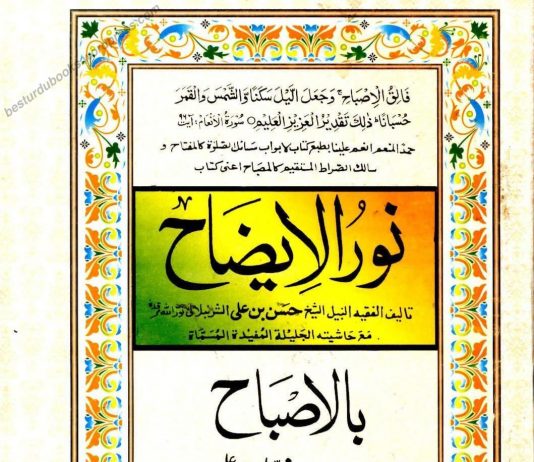 besturdubooks
فَالِقُ الْاِصْبَاحِ ۚ وَجَعَلَ الَّيْلَ سَكَنًا وَّالشَّمْسَ وَالْقَمَرَ
حُسْبَانًا ؕ ذٰلِكَ تَقْدِيْرُ الْعَزِيْزِ الْعَلِيْمِ ○ سُوْرَةُ الْاَنْعَام، آيت
حمدًا لمنعم انعم علينا بطبع كتاب لابواب مسائل الصلوٰة كالمفتاح و
سالك الصراط المستقيم كالمصباح اعنى كتاب
نُورُ الْإِيضَاح
تاليف الفقيه النبيل الشيخ حسن بن على الشرنبلالى نور الله مرقده
مَعَ حَاشيته الجليلة المُفيدة المُسَمَّاة
بِالْاِصْبَاح